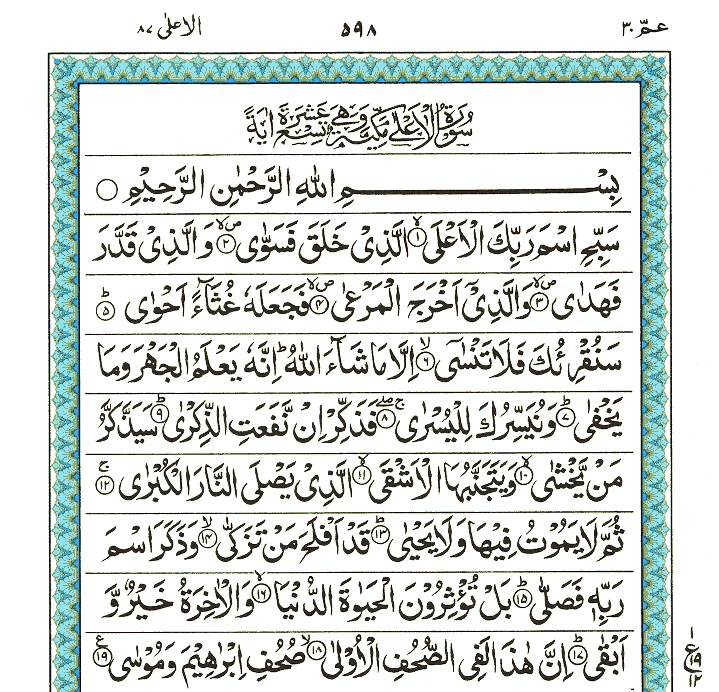 عمّ ٣٠ ٥٩٨ الاعلى ٨٧
سُوْرَةُ الْاَعْلٰى مَكِّيَّةٌ وَّهِيَ تِسْعَ عَشْرَةَ اٰيَةً
بِسْمِ اللّٰهِ الرَّحْمٰنِ الرَّحِيْمِ ○
سَبِّحِ اسْمَ رَبِّكَ الْاَعْلَى ۙ﴿١﴾ الَّذِىْ خَلَقَ فَسَوّٰى ۪ۙ﴿٢﴾ وَالَّذِىْ قَدَّرَ
فَهَدٰى ۪ۙ﴿٣﴾ وَالَّذِىْٓ اَخْرَجَ الْمَرْعٰى ۪ۙ﴿٤﴾ فَجَعَلَهٗ غُثَآءً اَحْوٰى ؕ﴿٥﴾
سَنُقْرِئُكَ فَلَا تَنْسٰٓى ۙ﴿٦﴾ اِلَّا مَا شَآءَ اللّٰهُ ؕ اِنَّهٗ يَعْلَمُ الْجَهْرَ وَمَا
يَخْفٰى ؕ﴿٧﴾ وَنُيَسِّرُكَ لِلْيُسْرٰى ۚۖ﴿٨﴾ فَذَكِّرْ اِنْ نَّفَعَتِ الذِّكْرٰى ؕ﴿٩﴾ سَيَذَّكَّرُ
مَنْ يَّخْشٰى ۙ﴿١٠﴾ وَيَتَجَنَّبُهَا الْاَشْقَى ۙ﴿١١﴾ الَّذِىْ يَصْلَى النَّارَ الْكُبْرٰى ۚ﴿١٢﴾
ثُمَّ لَا يَمُوْتُ فِيْهَا وَلَا يَحْيٰى ؕ﴿١٣﴾ قَدْ اَفْلَحَ مَنْ تَزَكّٰى ۙ﴿١٤﴾ وَذَكَرَ اسْمَ
رَبِّهٖ فَصَلّٰى ؕ﴿١٥﴾ بَلْ تُؤْثِرُوْنَ الْحَيٰوةَ الدُّنْيَا ۖ﴿١٦﴾ وَالْاٰخِرَةُ خَيْرٌ وَّ
اَبْقٰى ؕ﴿١٧﴾ اِنَّ هٰذَا لَفِى الصُّحُفِ الْاُوْلٰى ۙ﴿١٨﴾ صُحُفِ اِبْرٰهِيْمَ وَمُوْسٰى ﴿١٩﴾ ع
١
ع ١٩
١٢